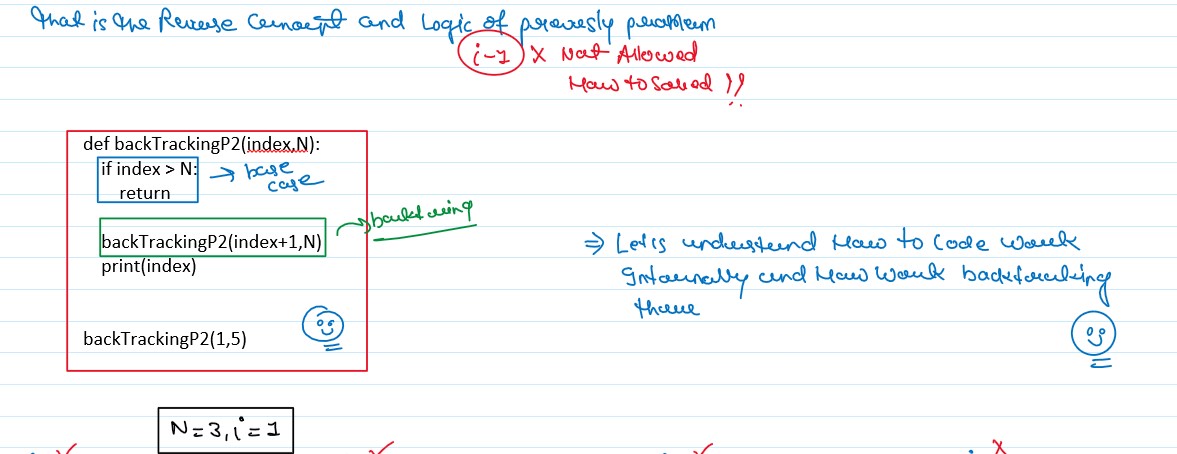 That is the Reverse Concept and Logic of previously problem
i-1 x Not Allowed
How to Solved !!
def backTrackingP2(index,N):
if index > N: → base
return case
backTrackingP2(index+1,N) → backtracking
print(index)
backTrackingP2(1,5)
⇒ Let's understand How to Code Work
Internally and How Work backtracking
there
N=3, i=1